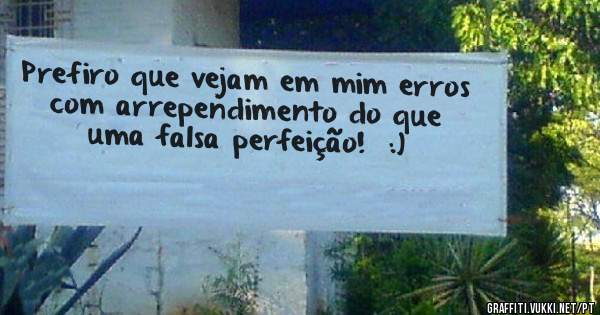 Prefiro que vejam em mim erros
com arrependimento do que
uma falsa perfeição! :)
GRAFFITI.VUKKI.NET/PT